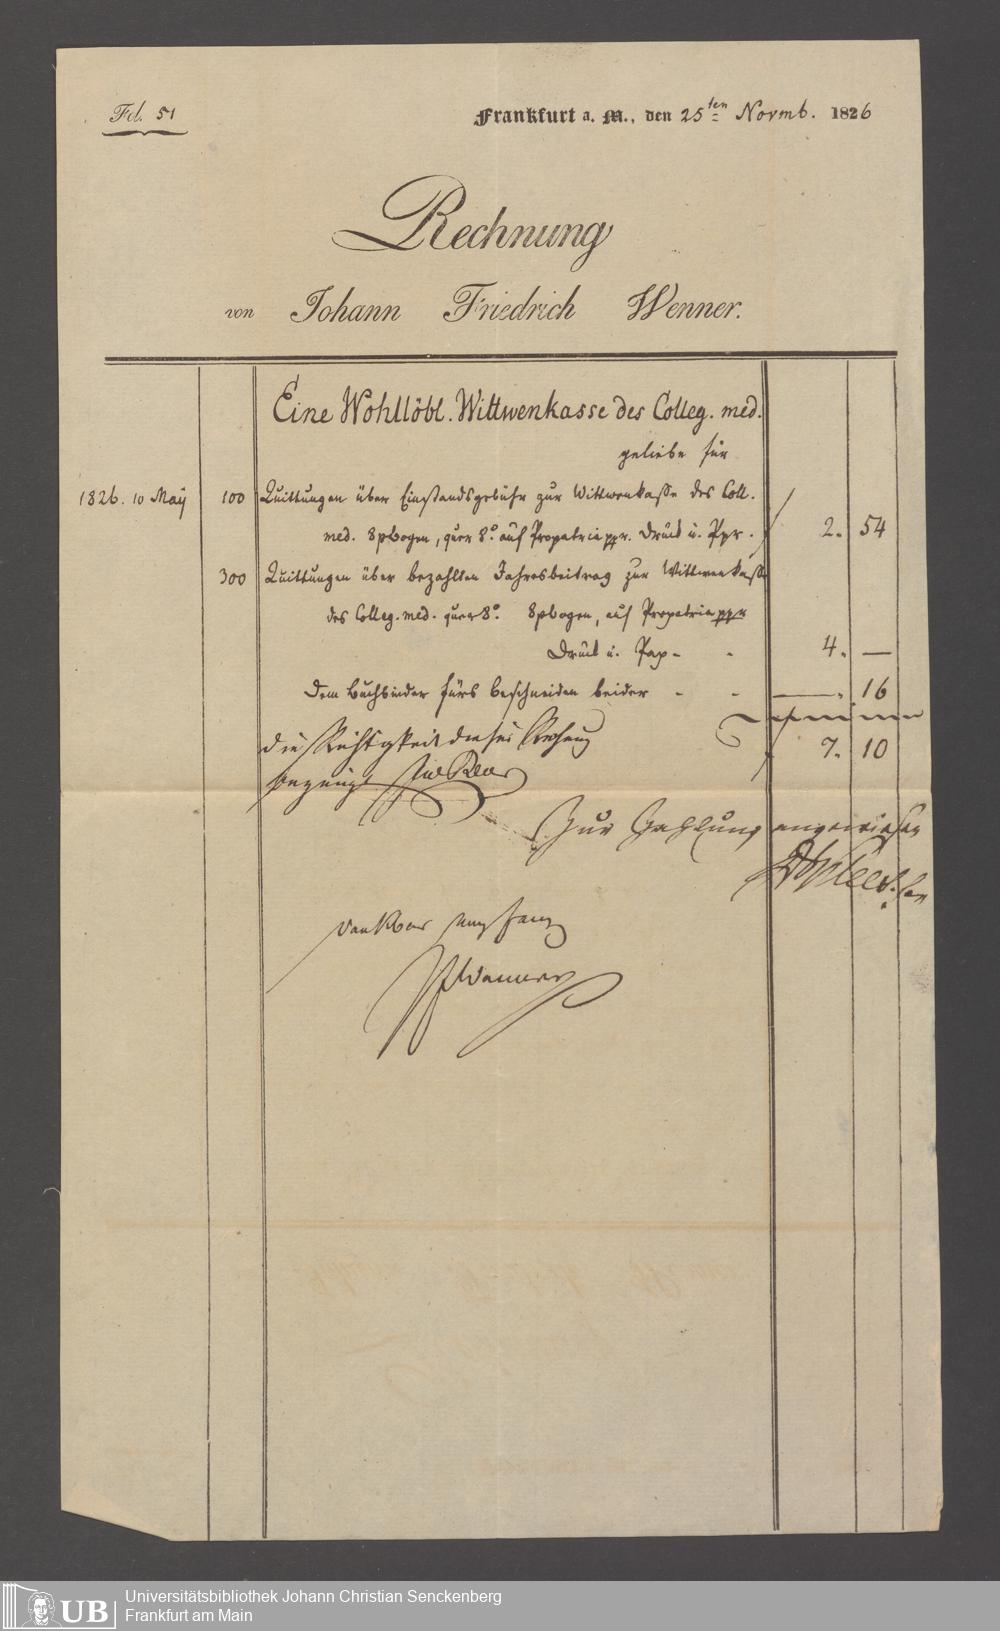 Fol. 51
Frankfurt a. M., den 25ten Novmb. 1826
Rechnung
von Johann Friedrich Wenner.
Eine Wohllöbl. Wittwenkasse des Colleg. med.
geliebe für
1826. 10 May 100 Quittungen über Einstandsgebühr zur Wittwenkasse des Coll.
med. 8 pbogen, quer 8° auf Propatria ppr. Druck u. Ppr. 2. 54
300 Quittungen über bezahlten Jahresbeitrag zur Wittwenkasse
des Colleg. med. quer 8°. 8 pbogen, auf Propatria ppr
Druck u. Pap - - 4. —
Dem Buchbinder fürs beschneiden beider - - —. 16
7. 10
die Richtigkeit dieser Rechnung
bezeugt
Zur Zahlung angewiesen
dankbar empfangen
JFWenner
Universitätsbibliothek Johann Christian Senckenberg
Frankfurt am Main
UB